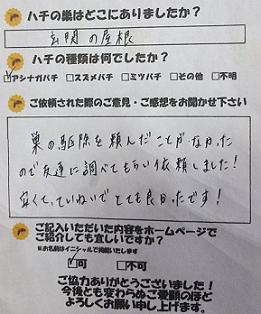 ハチの巣はどこにありましたか？
玄関の屋根
ハチの種類は何でしたか？
☑アシナガバチ □スズメバチ □ミツバチ □その他 □不明
ご依頼された際のご意見・ご感想をお聞かせ下さい
巣の駆除を頼んだことがなかった
ので友達に調べてもらい依頼しました！
安くて、ていねいでとても良かったです！
ご記入いただいた内容をホームページで
ご紹介しても宜しいですか？
※お名前はイニシャルで掲載いたします
☑可 □不可
ご協力ありがとうございました！
今後とも変わらぬご愛顧のほど
よろしくお願い申し上げます。